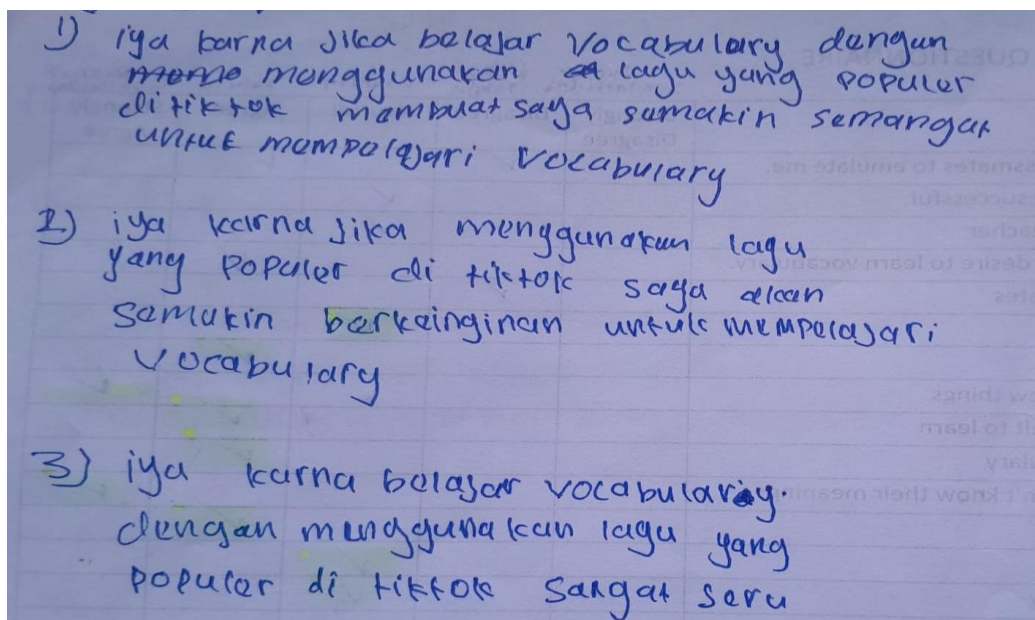 1) iya karna jika belajar vocabulary dengan
menggunakan lagu yang populer
di tiktok membuat saya semakin semangat
untuk mempelajari vocabulary
2) iya karna jika menggunakan lagu
yang populer di tiktok saya akan
semakin berkeinginan untuk mempelajari
vocabulary
3) iya karna belajar vocabulary.
dengan menggunakan lagu yang
populer di tiktok sangat seru